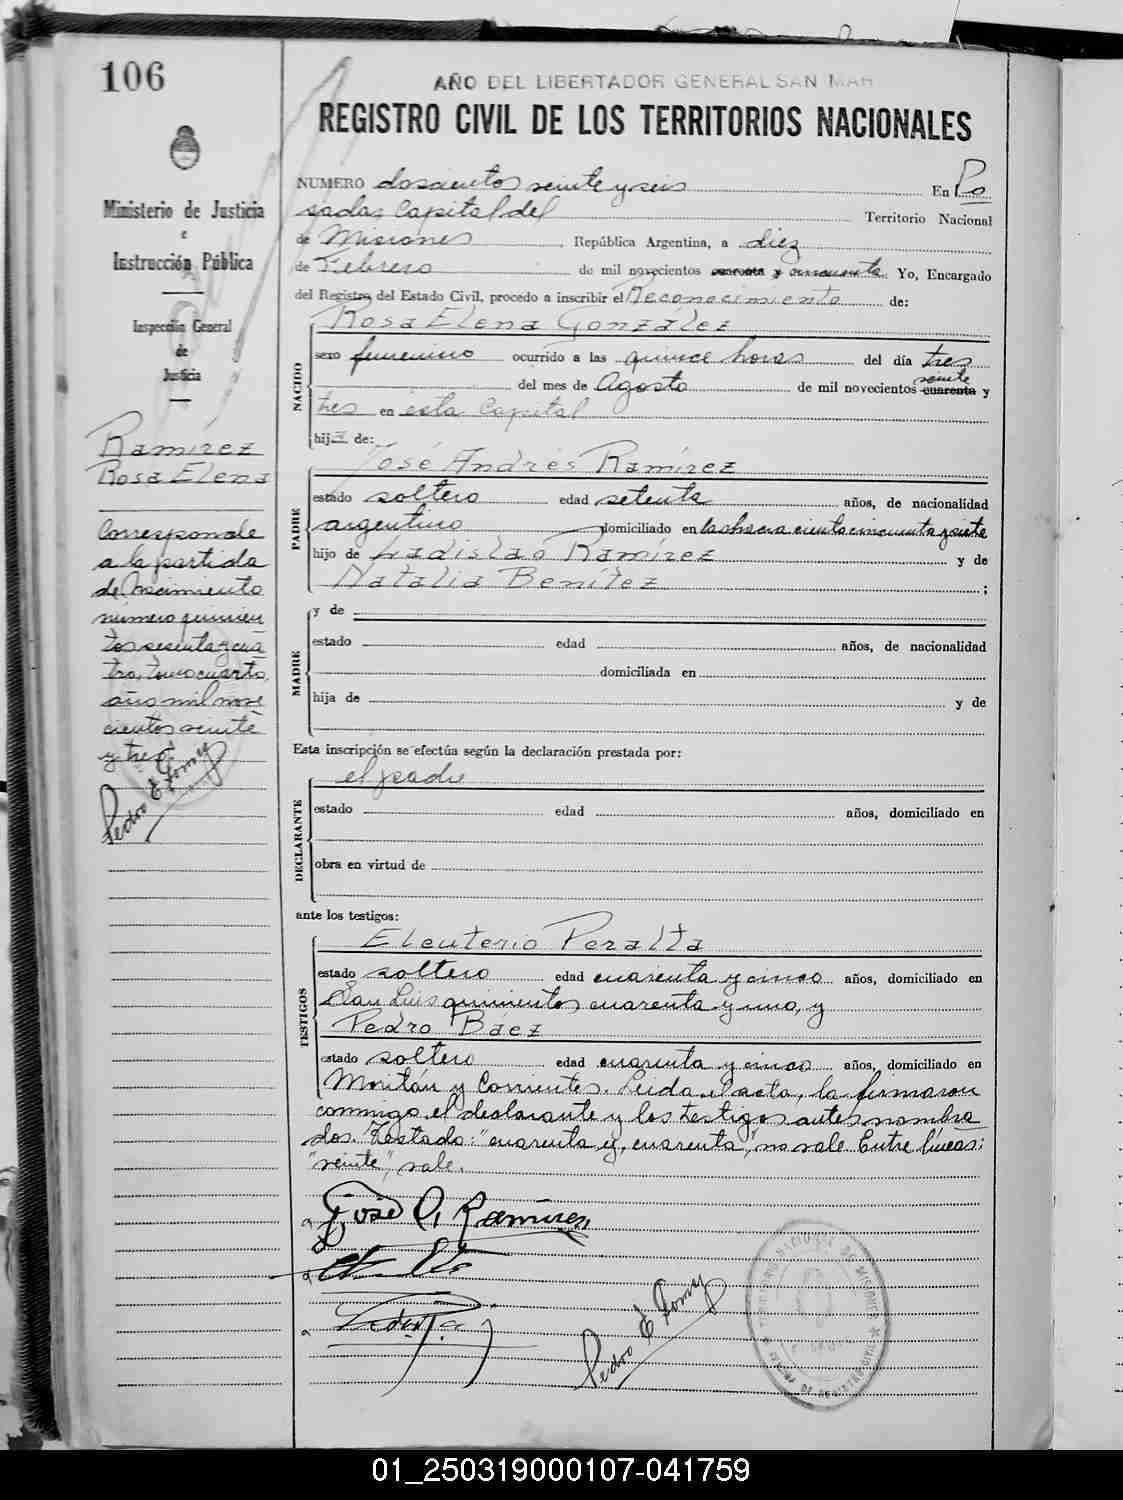 106
AÑO DEL LIBERTADOR GENERAL SAN MAR
REGISTRO CIVIL DE LOS TERRITORIOS NACIONALES
Ministerio de Justicia
e
Instrucción Pública
Inspección General
de
Justicia
Ramírez
Rosa Elena
Corresponde
a la partida
de Nacimiento
número quinien
tos sesenta y cua
tro, tomo cuarto,
año mil nove
cientos veinte
y tres.
Pedro E Gomy
NUMERO doscientos veinte y seis En Po
sadas Capital del Territorio Nacional
de Misiones, República Argentina, a diez
de Febrero de mil novecientos cuarenta y cincuenta Yo, Encargado
del Registro del Estado Civil, procedo a inscribir el Reconocimiento de:
Rosa Elena González
NACIDO
sexo femenino ocurrido a las quince horas del día tres
del mes de Agosto de mil novecientos cuarenta veinte y
tres en esta Capital
hija de:
José Andrés Ramírez
PADRE
estado soltero edad setenta años, de nacionalidad
argentino domiciliado en la chacra ciento cincuenta y siete
hijo de Ladislao Ramírez y de
Natalia Benítez ;
MADRE
y de
estado edad años, de nacionalidad
domiciliada en
hija de y de
Esta inscripción se efectúa según la declaración prestada por:
el padre
DECLARANTE
estado edad años, domiciliado en
obra en virtud de
ante los testigos:
Eleuterio Peralta
TESTIGOS
estado soltero edad cuarenta y cinco años, domiciliado en
San Luis quinientos cuarenta y uno, y
Pedro Báez
estado soltero edad cuarenta y cinco años, domiciliado en
Moritán y Corrientes. Leida el acta, la firmaron
conmigo el declarante y los testigos antes nombra
dos. Testado: "cuarenta y, cuarenta", no vale. Entre líneas:
"veinte", vale.
José A. Ramírez
Pedro E Gomy
01_250319000107-041759